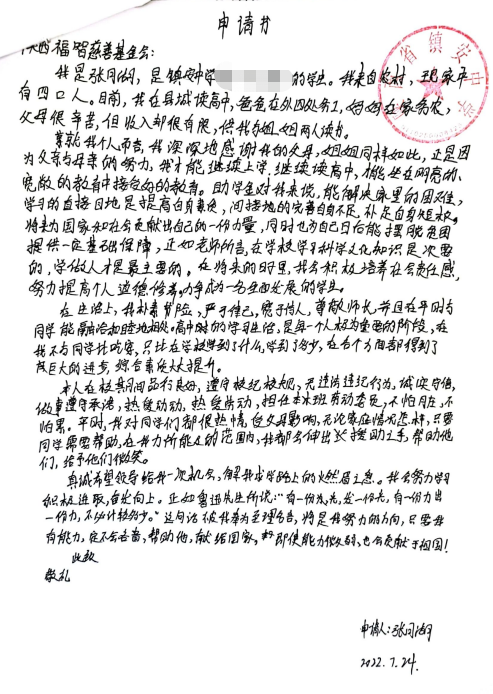 申请书
陕西福智慈善基金会:
我是张同湖,是镇安中学 的学生。我来自农村,现家中
有四口人。目前,我在县城读高中,爸爸在外四处务工,妈妈在家务农,
父母很辛苦,但收入却很有限,供我与姐姐两人读书。
就我个人而言,我深深地感谢我的父母,姐姐同样如此,正是因
为父亲与母亲的努力,我才能继续上学,继续读高中,能坐在明亮、
宽敞的教室中接受好的教育。助学金对我来说,能解决家里的困难,
学习的直接目地是提高自身素养,间接地的完善自身不足,补足自身短板。
将来为国家和社会贡献出自己的一份力量,同时也为自己日后能摆脱贫困
提供一定基础保障,正如老师所言,在学校学习科学文化知识是次要
的,学做人才是最主要的。在将来的日子里,我会积极培养社会责任感,
努力提高个人道德修养,力争成为一名全面发展的学生。
在生活上,我朴素节俭,严于律己,宽于待人,尊敬师长,并且在平时与
同学能融洽和睦地相处。高中时的学习生活,是每一个人极为重要的阶段,在
我不与同学比吃穿,只比在学校学到了什么,学到了多少,在各个方面都得到了
巨大的进步,综合素质大大提升。
本人在校其间品行良好,遵守校纪校规,无违法违纪行为,诚实守信,
做事遵守承诺,热爱劳动,担任本班劳动委员,不怕脏,不
怕累。平时,我对同学们都很热情,受父母影响,无论家庭情况怎样,只要
同学需要帮助,在我力所能及的范围内,我都会伸出援助之手,帮助他
们,给予他们微笑。
真诚希望领导给我一次机会,解我求学路上的燃眉之急。我会努力学习
积极进取,奋发向上。正如鲁迅先生所说:"有一份光,发一份光,有一份力出
一份力,不必计较多少。"这句话被我奉为至理名言,将是我努力的方向,只要我
有能力,定不会吝啬,帮助他人,献给国家,即使能力微弱,也会贡献于祖国!
此致
敬礼
申请人:张同湖
2022.7.24.